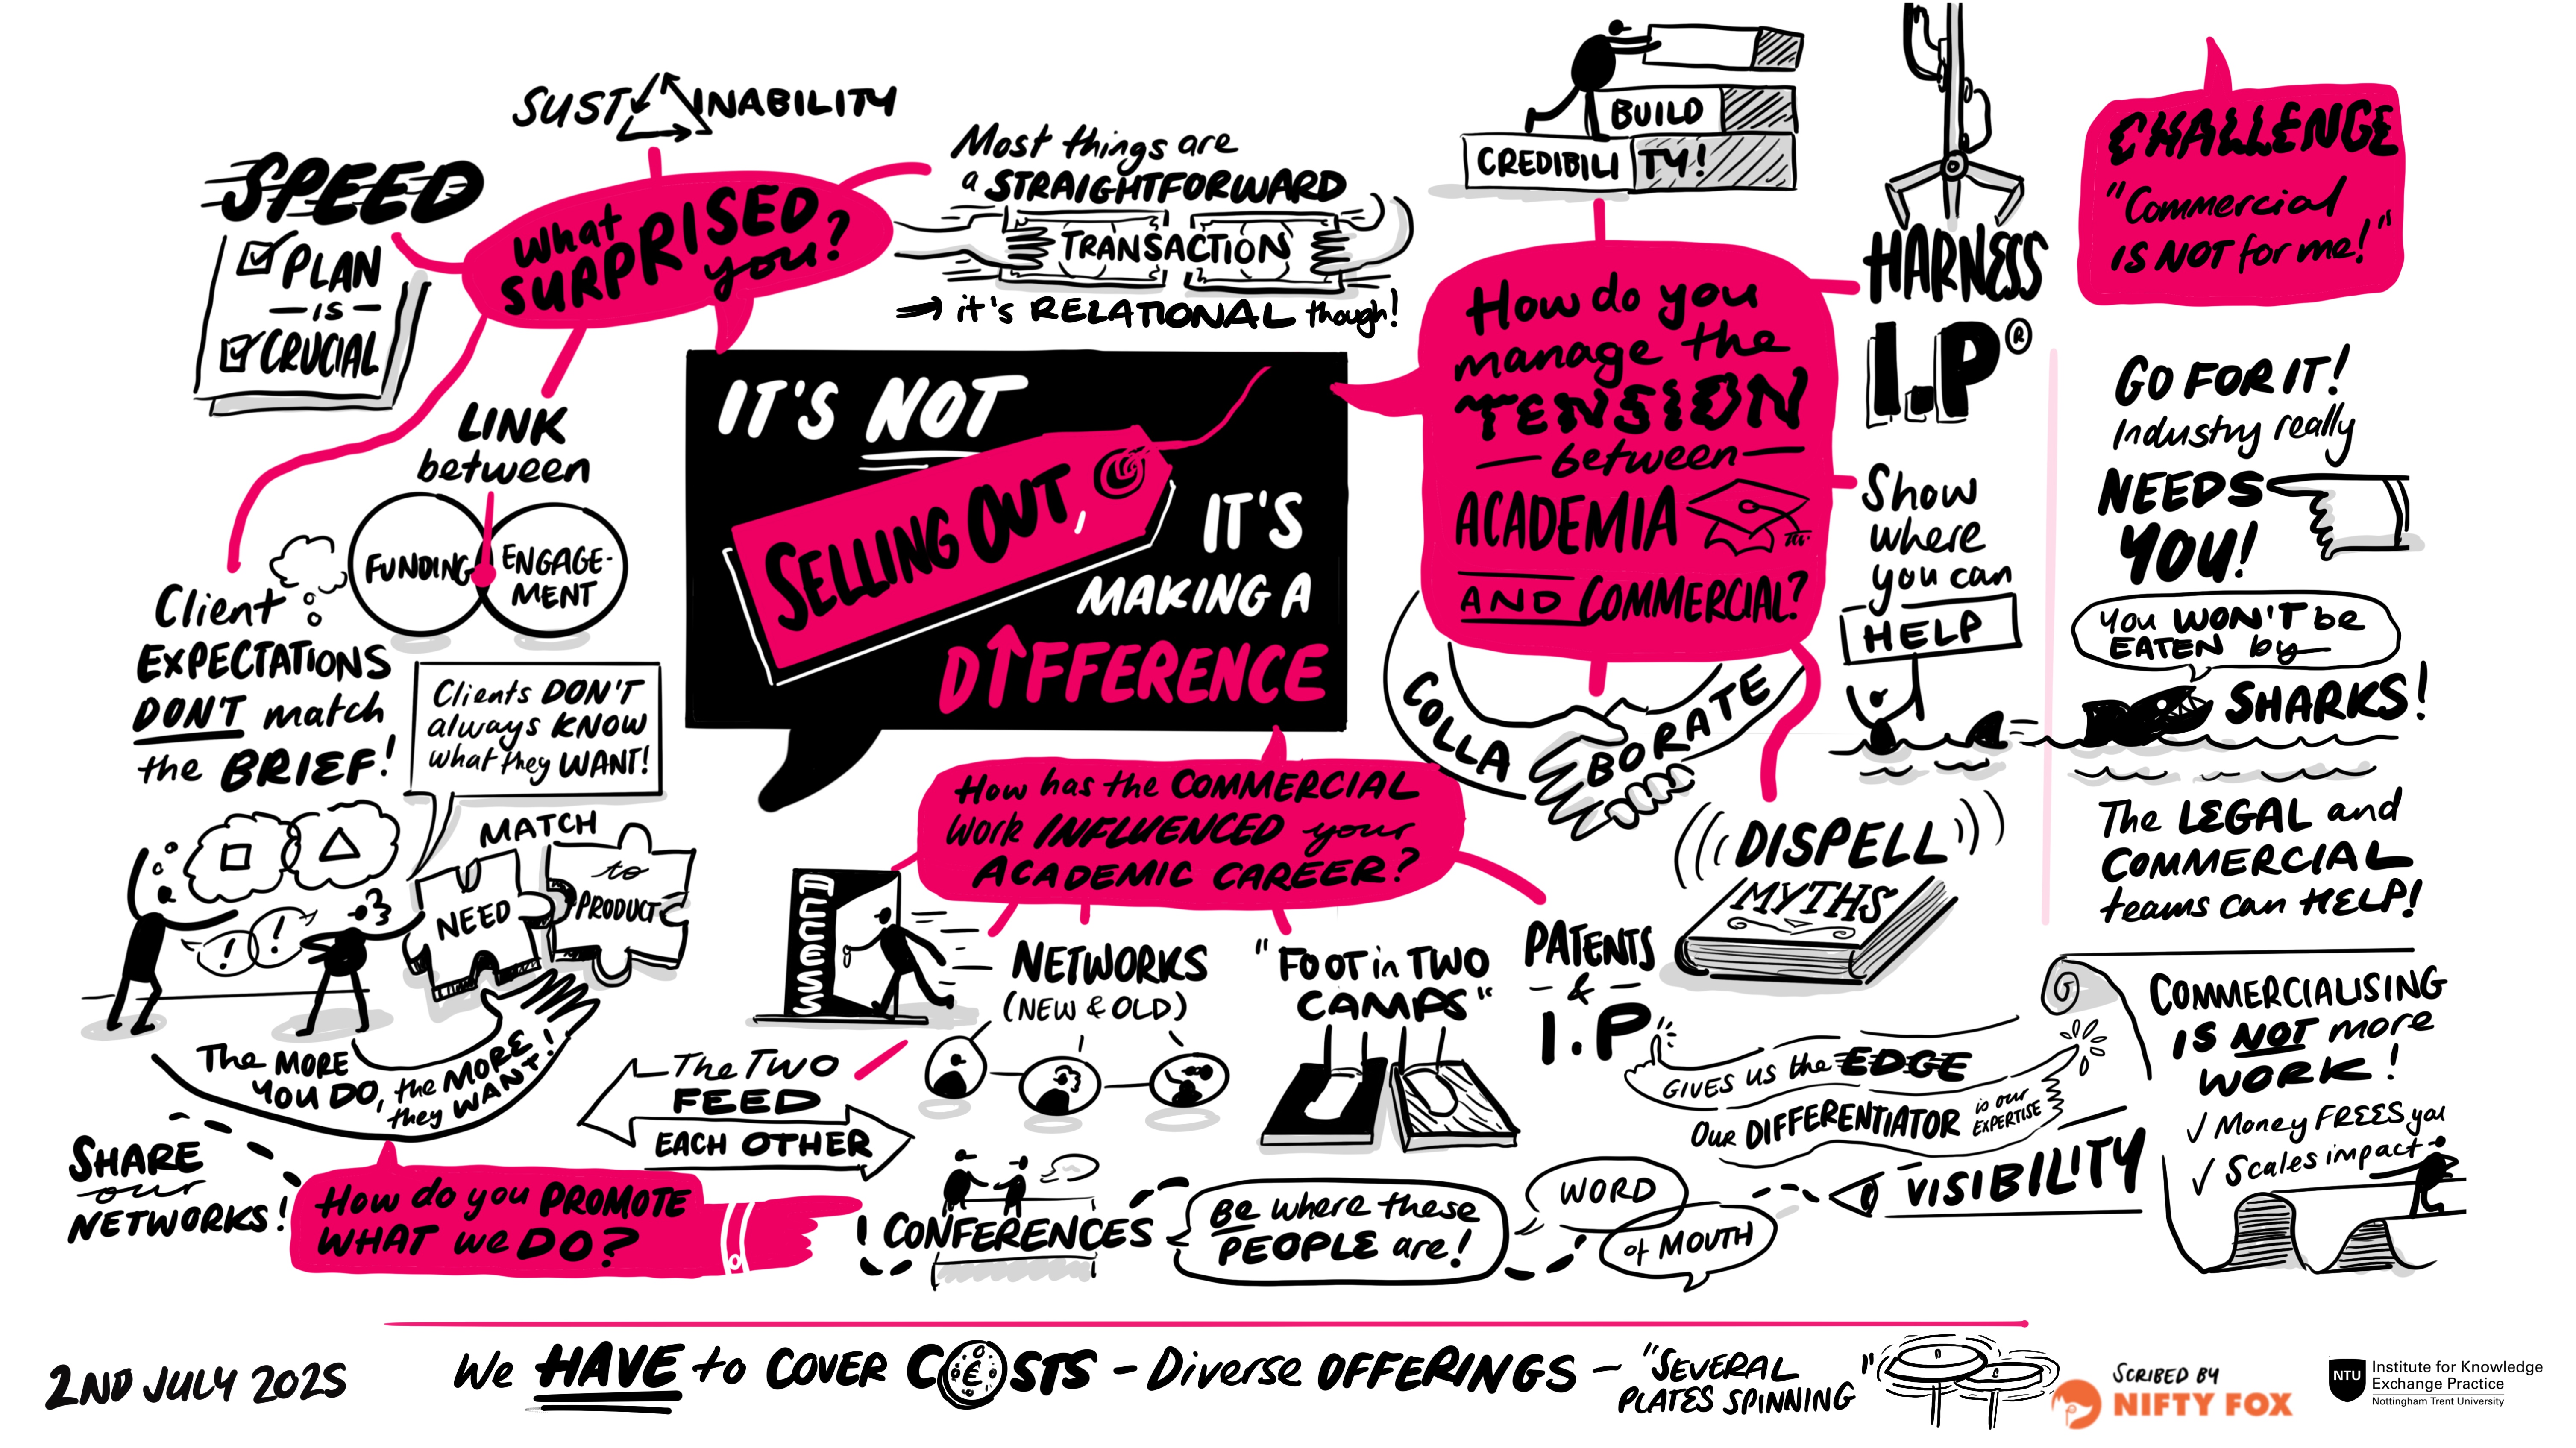 IT'S NOT
SELLING OUT,
IT'S
MAKING A
DIFFERENCE
What
SURPRISED
you?
SUSTAINABILITY
SPEED
PLAN
IS
CRUCIAL
Most things are
a STRAIGHTFORWARD
TRANSACTION
it's RELATIONAL though!
LINK
between
FUNDING
ENGAGE-
MENT
Client
EXPECTATIONS
DON'T match
the BRIEF!
Clients DON'T
always KNOW
what they WANT!
MATCH
NEED
to
PRODUCT
! !
The MORE
YOU DO, the MORE
they WANT!
How do you
manage the
TENSION
between
ACADEMIA
AND COMMERCIAL?
BUILD
CREDIBILITY!
HARNESS
I.P®
Show
where
you can
HELP
COLLABORATE
DISPELL
MYTHS
CHALLENGE
"Commercial
IS NOT for me!"
GO FOR IT!
Industry really
NEEDS
YOU!
You WON'T be
EATEN by
SHARKS!
The LEGAL and
COMMERCIAL
teams can HELP!
COMMERCIALISING
IS NOT more
WORK!
✓ Money FREES you
✓ Scales impact
How has the COMMERCIAL
Work INFLUENCED your
ACADEMIC CAREER?
ACCESS
The TWO
FEED
EACH OTHER
NETWORKS
(NEW & OLD)
"FOOT in TWO
CAMPS"
PATENTS
- & -
I.P
GIVES US the EDGE
OUR DIFFERENTIATOR is our
EXPERTISE
How do you PROMOTE
WHAT we DO?
SHARE
our
NETWORKS!
CONFERENCES
BE where these
PEOPLE are!
WORD
of MOUTH
VISIBILITY
2ND JULY 2025
We HAVE to COVER COSTS - Diverse OFFERINGS - "SEVERAL
PLATES SPINNING"
€
SCRIBED BY
NIFTY FOX
NTU
Institute for Knowledge
Exchange Practice
Nottingham Trent University